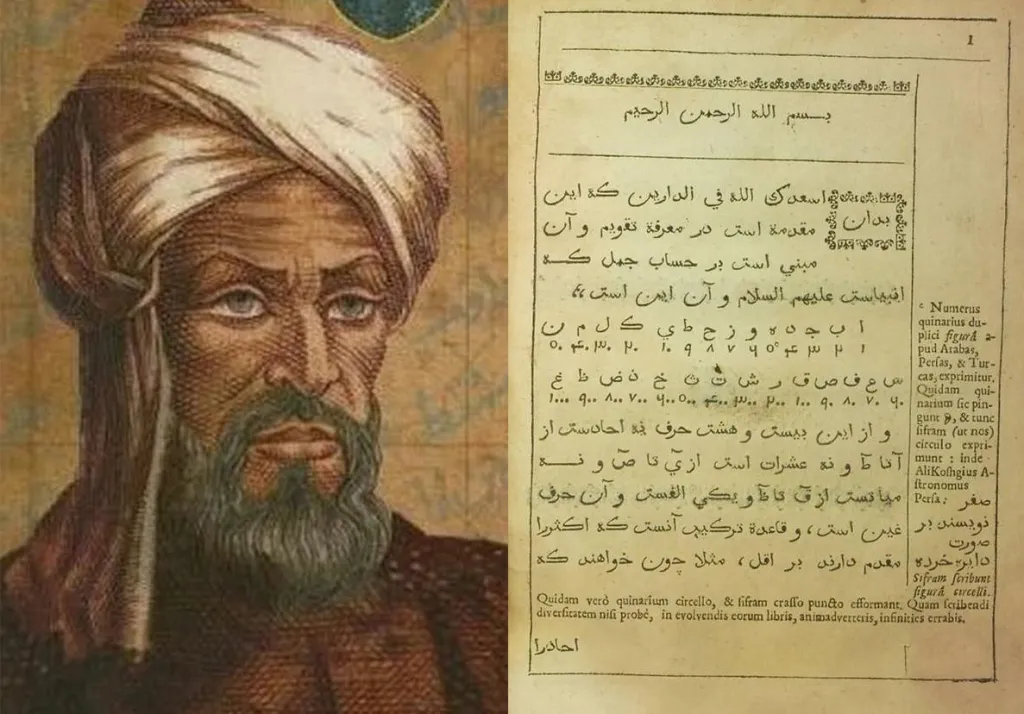 1
بسم الله الرحمن الرحيم
بدان اسعدك الله في الدارين كه اين
مقدمة است در معرفة تقويم و آن
مبني است بر حساب جمل كه
انبياست عليهم السلام و آن اين است
ا ب ج د ه و ز ح ط ي ك ل م ن
۱ ۲ ۳ ۴ ۵ ۶ ۷ ۸ ۹ ۱۰ ۲۰ ۳۰ ۴۰ ۵۰
س ع ف ص ق ر ش ت ث خ ذ ض ظ غ
۶۰ ۷۰ ۸۰ ۹۰ ۱۰۰ ۲۰۰ ۳۰۰ ۴۰۰ ۵۰۰ ۶۰۰ ۷۰۰ ۸۰۰ ۹۰۰ ۱۰۰۰
و از اين بيست و هشت حرف نه احادست از
آ تا ط و نه عشرات است از ي تا ص و نه
مياتست از ق تا ظ و يكي الفست و آن حرف
غين است، و قاعدة تركيب آنست كه اكثررا
مقدم دارند بر اقل، مثلا چون خواهند كه
c Numerus
quinarius du-
plici figurâ a-
pud Arabas,
Persas, & Tur-
cas, exprimitur.
Quidam qui-
narium sic pin-
gunt, & tunc
sifram (ut nos)
circulo expri-
munt: inde
AliKoshgius A-
stronomus
Persa: صفر
نويسند بر
صورت
دايره خرده
Sifram scribunt
figurâ circelli.
Quidam verò quinarium circello, & sifram crasso puncto efformant. Quam scribendi
diversitatem nisi probè, in evolvendis eorum libris, animadverteris, infinities errabis.
احادرا